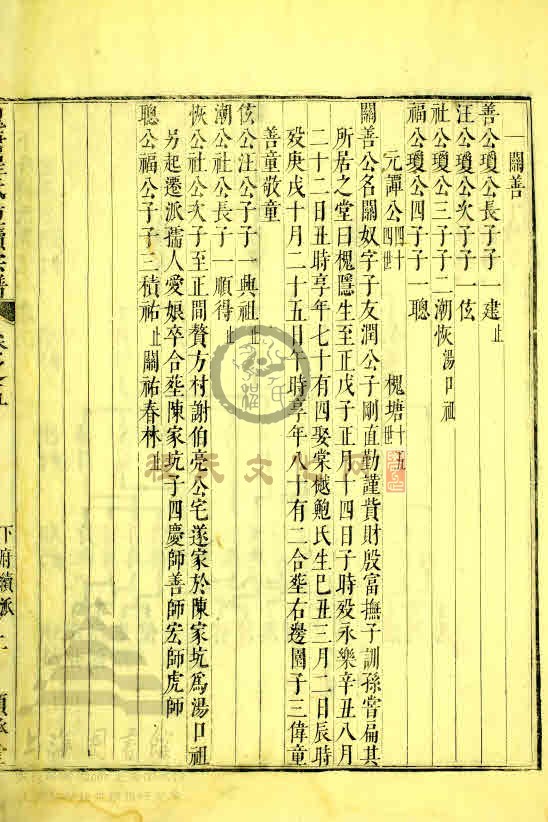 一關善
善公瓊公長子子一建止
汪公瓊公次子子一伭
社公瓊公三子子二潮恢湯口祖
福公瓊公四子子一聰
元譚公四十四世 槐塘十五世
關善公名關奴字子友潤公子剛直勤謹貲財殷富撫子訓孫嘗扁其
所居之堂曰槐隱生至正戊子正月十四日子時歿永樂辛丑八月
二十二日丑時享年七十有四娶棠樾鮑氏生巳丑三月二日辰時
歿庚戌十月二十五日午時享年八十有二合塟右邊圖子三偉童
善童敬童
伭公汪公子子一興祖止
潮公社公長子子一順得止
恢公社公次子至正間贅方村謝伯亮公宅遂家於陳家坑爲湯口祖
另起遷派孺人愛娘卒合塟陳家坑子四慶師善師宏師虎師
聰公福公子子三積祐止關祐春林止
下府續派
程氏文化网
上海图书馆